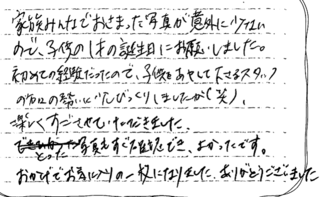 家族みんなでおさまった写真が意外に少ない
ので、子供の1才の誕生日にお願いしました。
初めての経験だったので、子供をあやして下さるスタッフ
の方の勢いにびっくりしましたが(笑)、
楽しくすごさせていただきました。
とった写真もすぐ確認でき、よかったです。
おかげでお気に入りの一枚になりました。ありがとうございました